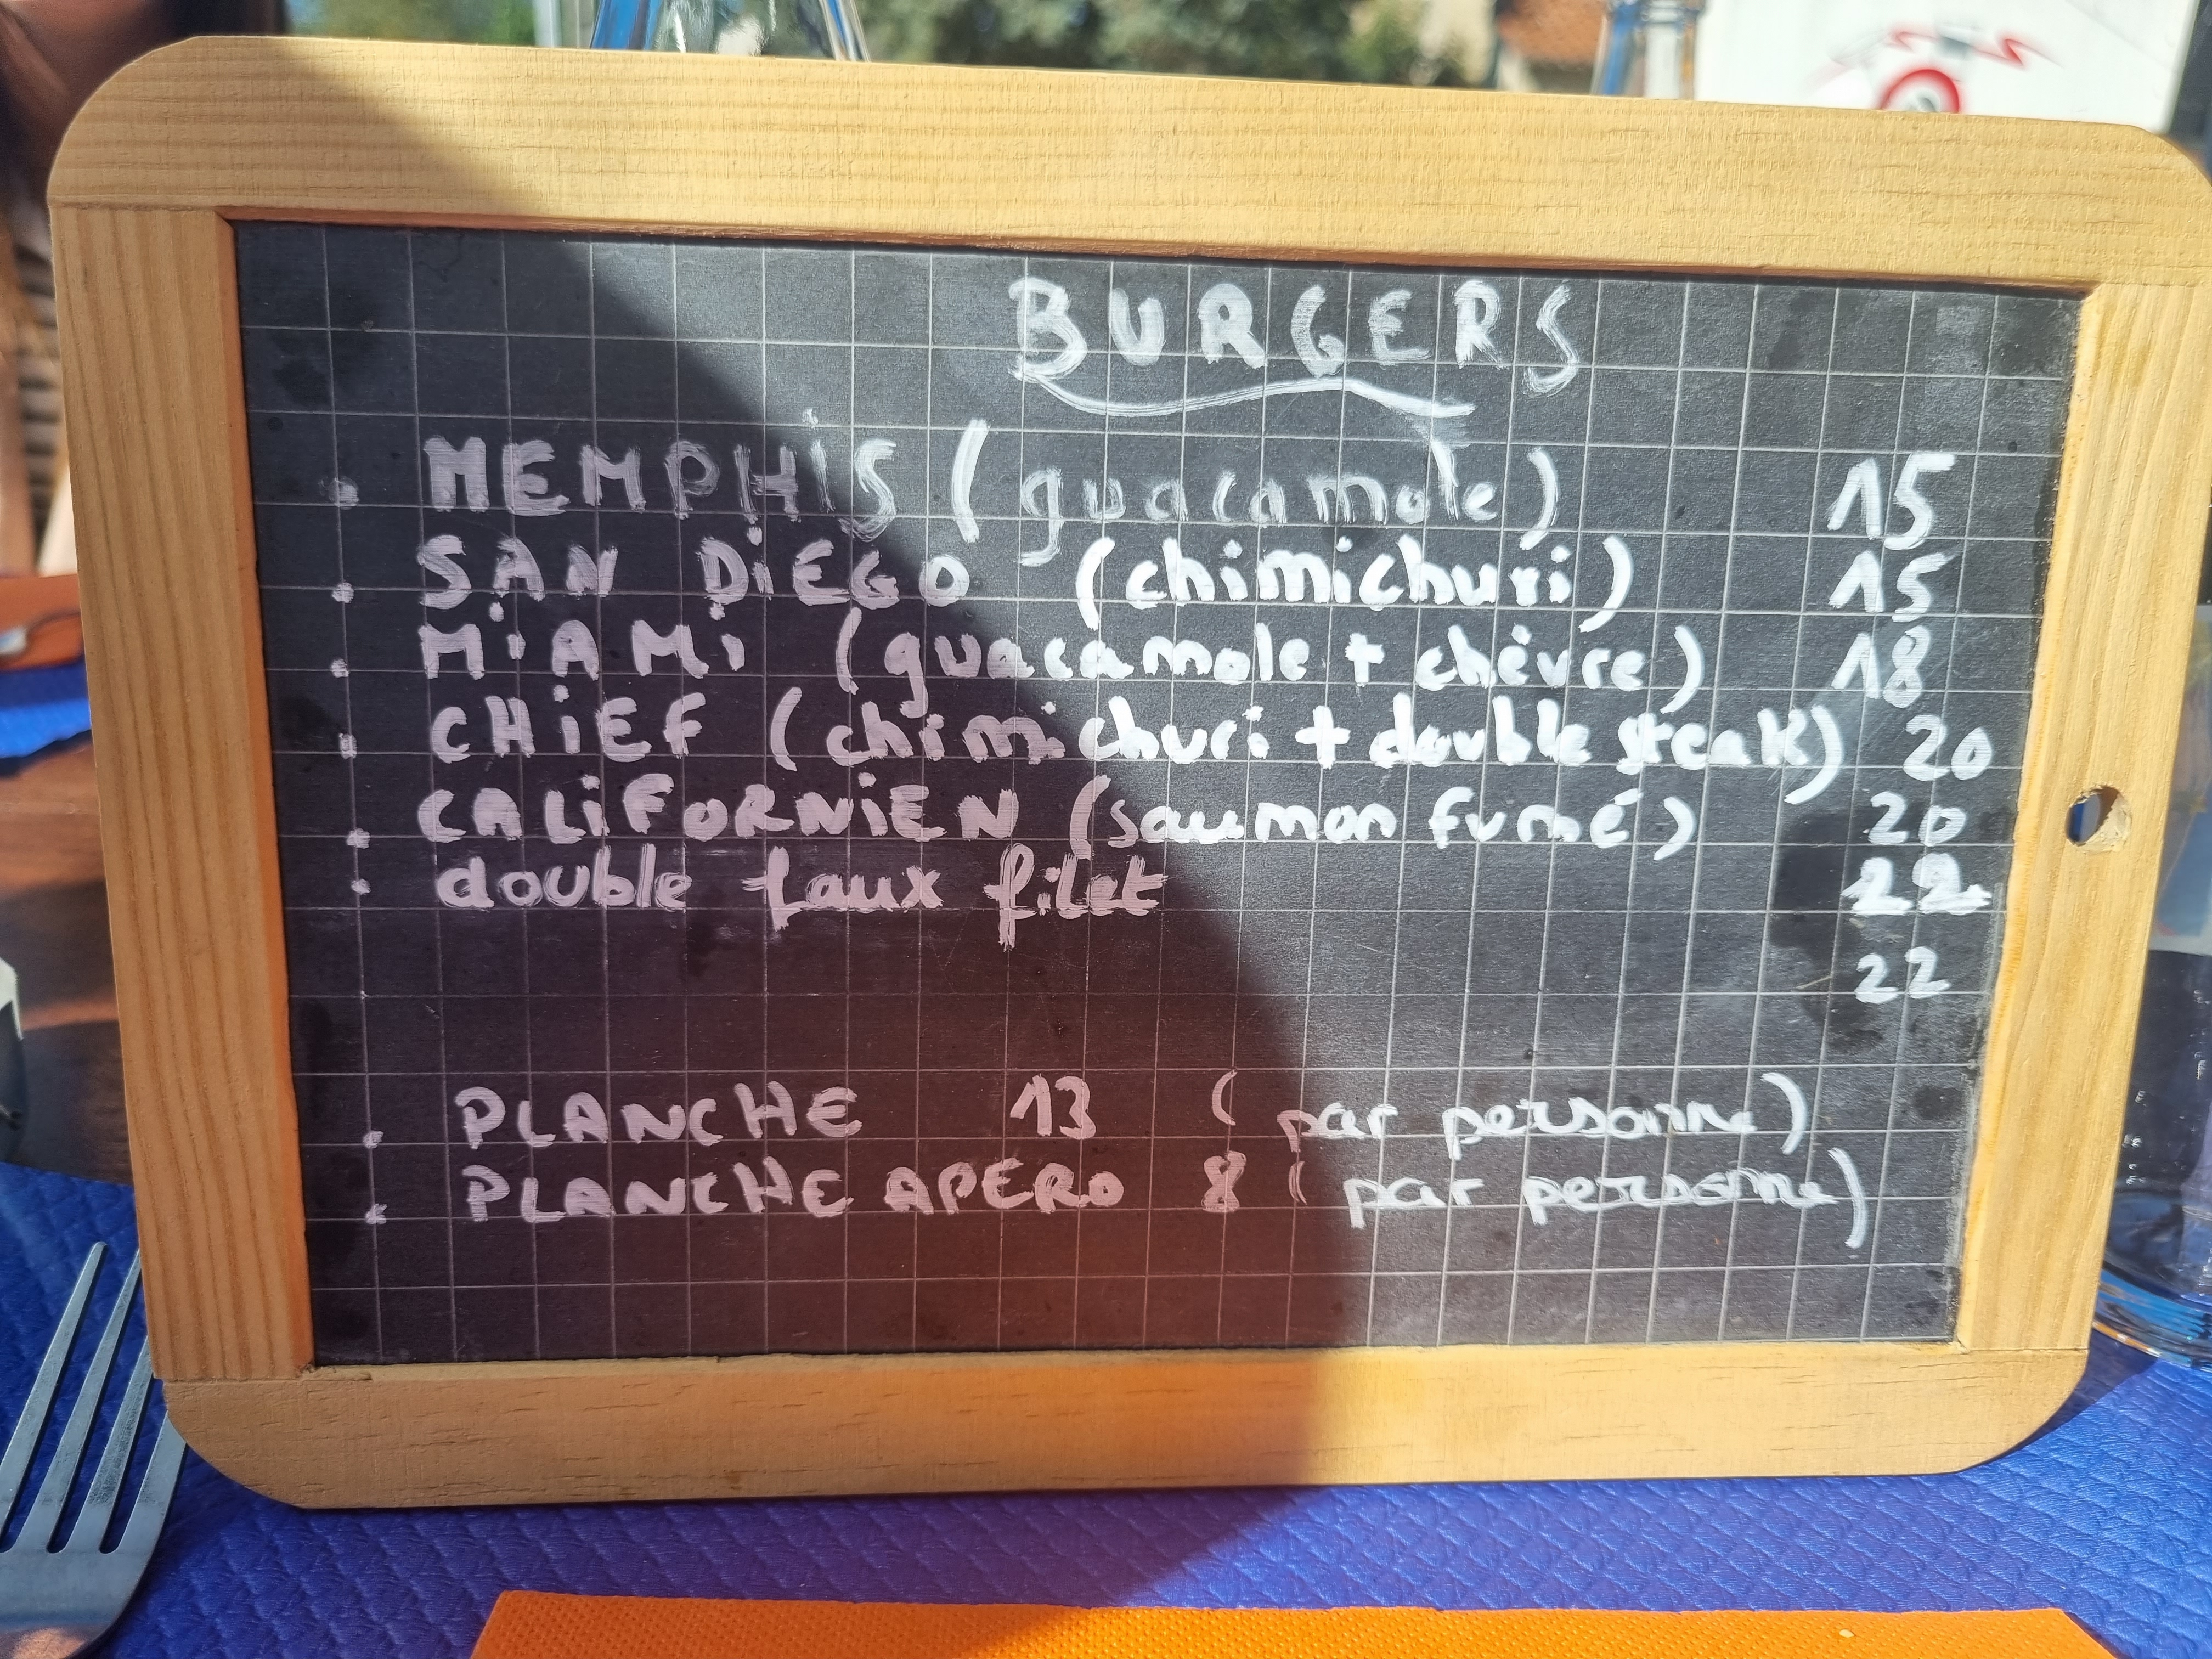 BURGERS
. MEMPHiS (guacamole) 15
. SAN DiEGO (chimichuri) 15
. MiAMi (guacamole + chèvre) 18
. CHiEF (chimichuri + double steak) 20
. CALiFORNiEN (saumon fumé) 20
. double faux filet 22
22
. PLANCHE 13 (par personne)
. PLANCHE APERO 8 (par personne)